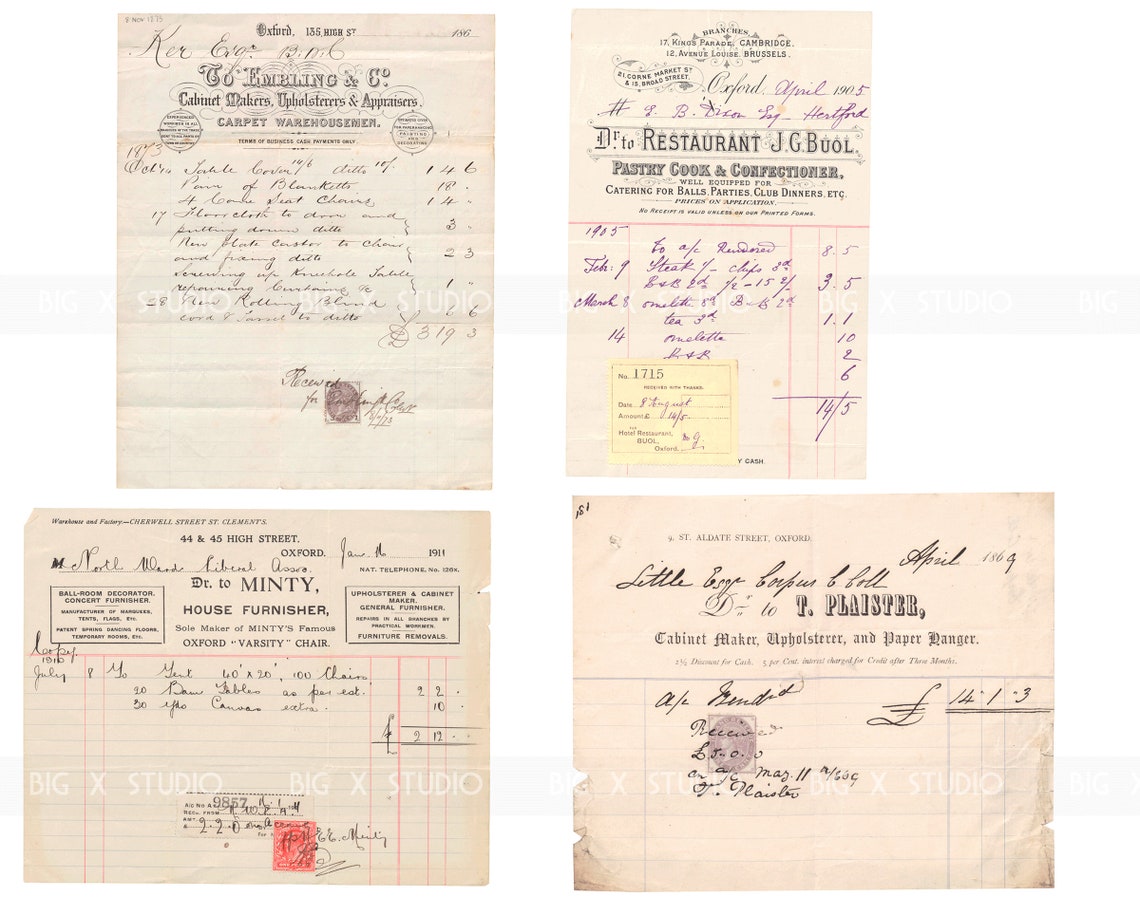 8 Nov 1873
Oxford, 135, HIGH ST 186
Ker Esqr B.N.C
TO EMBLING & Co.
Cabinet Makers, Upholsterers & Appraisers,
CARPET WAREHOUSEMEN.
TERMS OF BUSINESS CASH PAYMENTS ONLY.
1873
Octr 14 Table Cover 14/6 ditto 10/- 1 4 6
Pair of Blanketts 18 "
4 Cane Seat Chairs 1 4 "
17 Floorcloth to door and
putting down ditto 3 "
New plate castor to Chair
and fixing ditto 2 3
Screwing up Kneehole Table
repairing Curtains &c 1 "
28 New Rolling Blind
cord & Tassel to ditto 6 6
£ 3 19 3
Received
for
BRANCHES
17, KINGS PARADE, CAMBRIDGE.
12, AVENUE LOUISE, BRUSSELS.
21, CORNE MARKET ST
& 15, BROAD STREET,
Oxford, April 1905
E. B. Dixon Esq Hertford
Dr. to RESTAURANT J.G. BUOL.
PASTRY COOK & CONFECTIONER,
WELL EQUIPPED FOR
CATERING FOR BALLS, PARTIES, CLUB DINNERS, ETC.
PRICES ON APPLICATION.
NO RECEIPT IS VALID UNLESS ON OUR PRINTED FORMS.
1905
To a/c Rendered 8. 5
Feb: 9 Steak 1/- chips 3d
B&B 2d 3. 5
March 8 omelette 8d B&B 2d
tea 3d 1. 1
14 omelette 10
B&B 2
6
14/5
No. 1715
RECEIVED WITH THANKS.
Date 8 August
Amount £ 14/5-
FOR
Hotel Restaurant,
BUOL,
Oxford.
Y CASH.
Warehouse and Factory.—CHERWELL STREET ST. CLEMENT'S.
44 & 45 HIGH STREET.
OXFORD. Jan 16 1911
M North Ward Liberal Assoc.
NAT. TELEPHONE, No. 126X.
Dr. to MINTY,
HOUSE FURNISHER,
Sole Maker of MINTY'S Famous
OXFORD "VARSITY" CHAIR.
BALL-ROOM DECORATOR.
CONCERT FURNISHER.
MANUFACTURER OF MARQUEES,
TENTS, FLAGS, Etc.
PATENT SPRING DANCING FLOORS,
TEMPORARY ROOMS, Etc.
UPHOLSTERER & CABINET
MAKER.
GENERAL FURNISHER.
REPAIRS IN ALL BRANCHES BY
PRACTICAL WORKMEN.
FURNITURE REMOVALS.
Copy
1910
July 8 To Tent 40' x 20', 100 Chairs
20 Bam Tables as per est. 2 2 .
30 yds Canvas extra. 10 .
£ 2 12 .
A/C No A
9857
RECD. FROM
AMT
£ 2 . 2 . 0
E.E. Minty
181
9, ST. ALDATE STREET, OXFORD.
April 1869
Little Esqr Corpus C Coll
Dr to T. PLAISTER,
Cabinet Maker, Upholsterer, and Paper Hanger.
2½ Discount for Cash. 5 per Cent. interest charged for Credit after Three Months.
a/c Rendrd £ 14 " 1 " 3
Received
£5 . 0 . 0
on a/c May 11th/69
T. Plaister
BIG X STUDIO
BIG X STUDIO
BIG X STUDIO
BIG X STUDIO